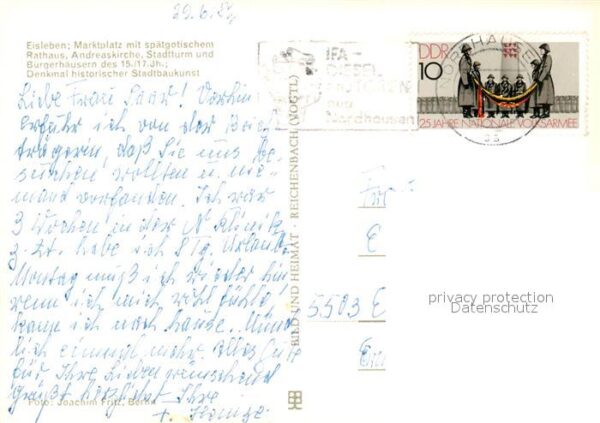 29.6.
Eisleben; Marktplatz mit spätgotischem
Rathaus, Andreaskirche, Stadtturm und
Bürgerhäusern des 15./17.Jh.;
Denkmal historischer Stadtbaukunst
Liebe Frau Saar! Vorhin
erfuhr ich von der Brief-
trägerin, daß Sie uns be-
suchen wollten u. nie-
mand vorfanden. Ich war
3 Wochen in der N Klinik
z. Zt. habe ich 8 Tg. Urlaub.
Montag muß ich wieder hin
wenn ich mich
komme ich nach Hause.
einmal mehr alles Gute
für Ihre Lieben wünschend
grüßt herzlichst Ihre
Foto: Joachim Fritz, Berlin
BILD UND HEIMAT · REICHENBACH (VOGTL)
IFA-
DIESEL
MOTOREN
aus
Nordhausen
NORDHAUSEN
DDR
10
25 JAHRE NATIONALE VOLKSARMEE
E
5503 E
privacy protection
Datenschutz